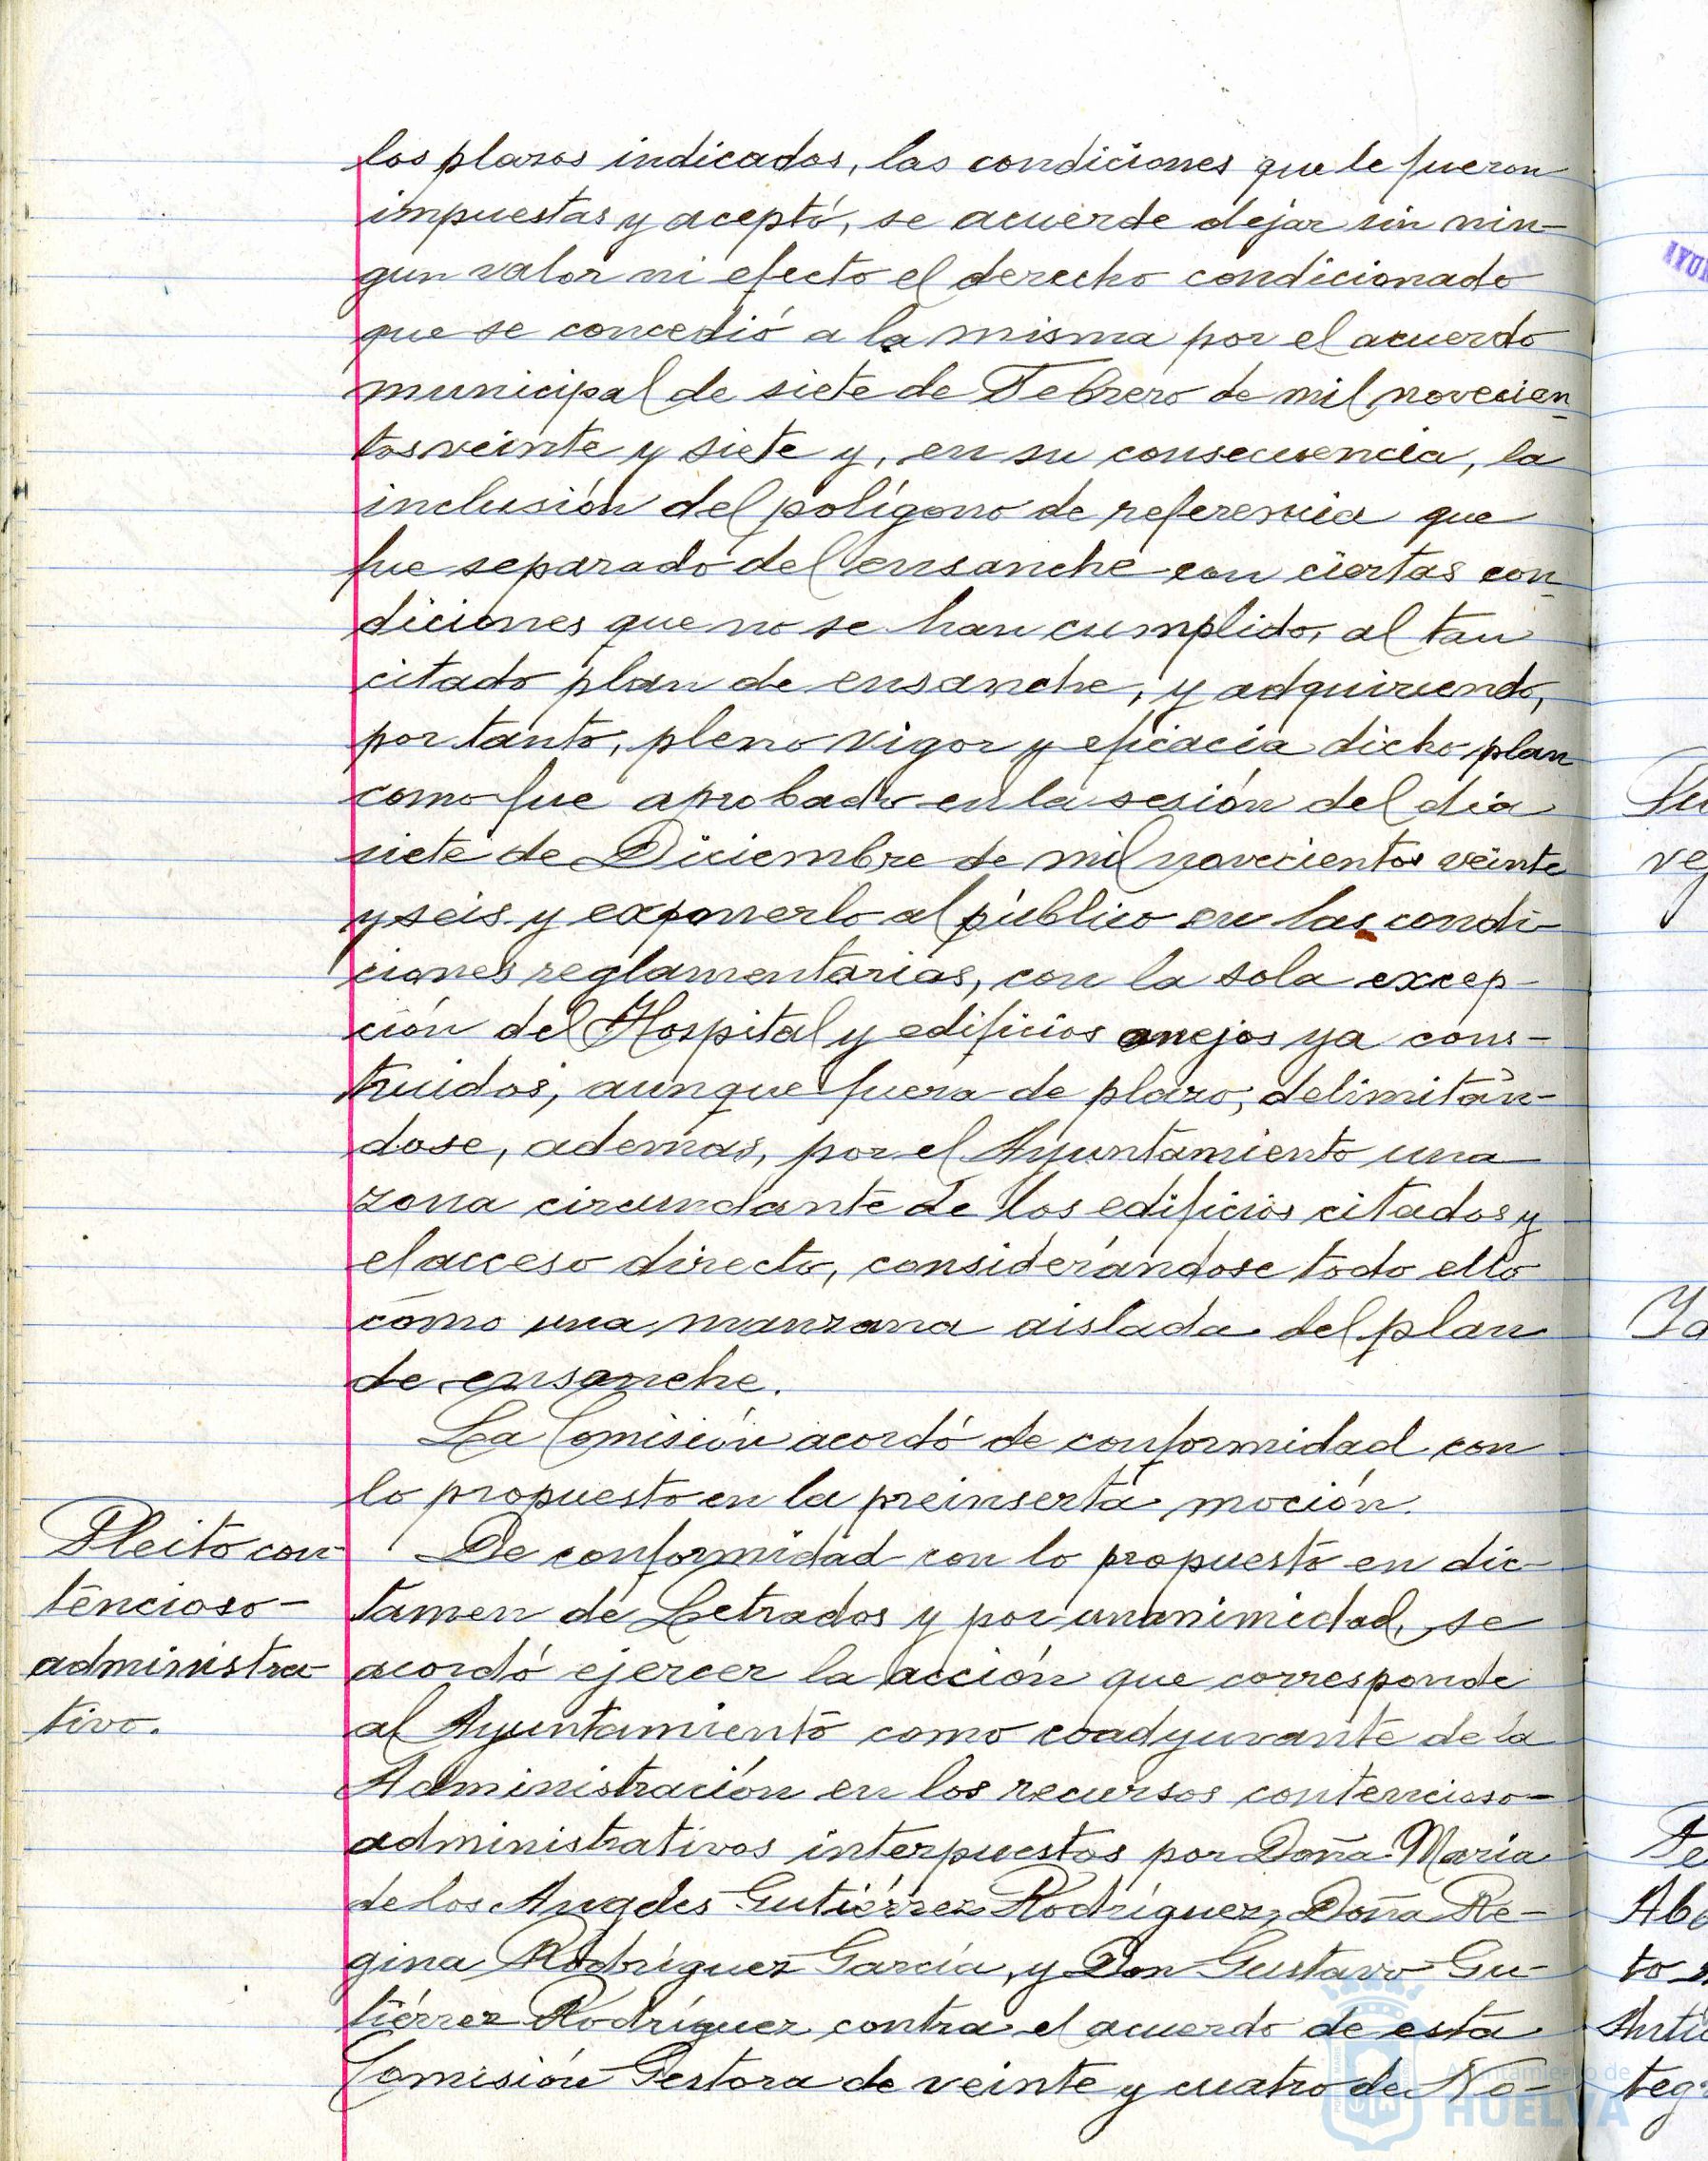 los plazos indicados, las condiciones que le fueron
impuestas y aceptó, se acuerde dejar sin nin-
gun valor ni efecto el derecho condicionado
que se concedió a la misma por el acuerdo
municipal de siete de Febrero de mil novecien-
tos veinte y siete y, en su consecuencia, la
inclusión del polígono de referencia que
fue separado del ensanche con ciertas con-
diciones que no se han cumplido, al tan
citado plan de ensanche, y adquiriendo,
por tanto, pleno vigor y eficacia dicho plan
como fue aprobado en la sesión del dia
siete de Diciembre de mil novecientos veinte
y seis y exponerlo al público en las condi-
ciones reglamentarias, con la sola excep-
ción del Hospital y edificios anejos ya cons-
truidos, aunque fuera de plazo, delimitán-
dose, ademas, por el Ayuntamiento una
zona circundante de los edificios citados y
el acceso directo, considerándose todo ello
como una manzana aislada del plan
de ensanche.
La Comisión acordó de conformidad con
lo propuesto en la preinserta moción.
Pleito con-
tencioso-
administra-
tivo.
De conformidad con lo propuesto en dic-
tamen de Letrados y por unanimidad, se
acordó ejercer la acción que corresponde
al Ayuntamiento como coadyuvante de la
Administración en los recursos contencioso-
administrativos interpuestos por Doña Maria
de los Angeles Gutiérrez Rodríguez, Doña Re-
gina Rodríguez García, y Don Gustavo Gu-
tiérrez Rodríguez contra el acuerdo de esta
Comisión Gestora de veinte y cuatro de No-
Ayuntamiento de
HUELVA